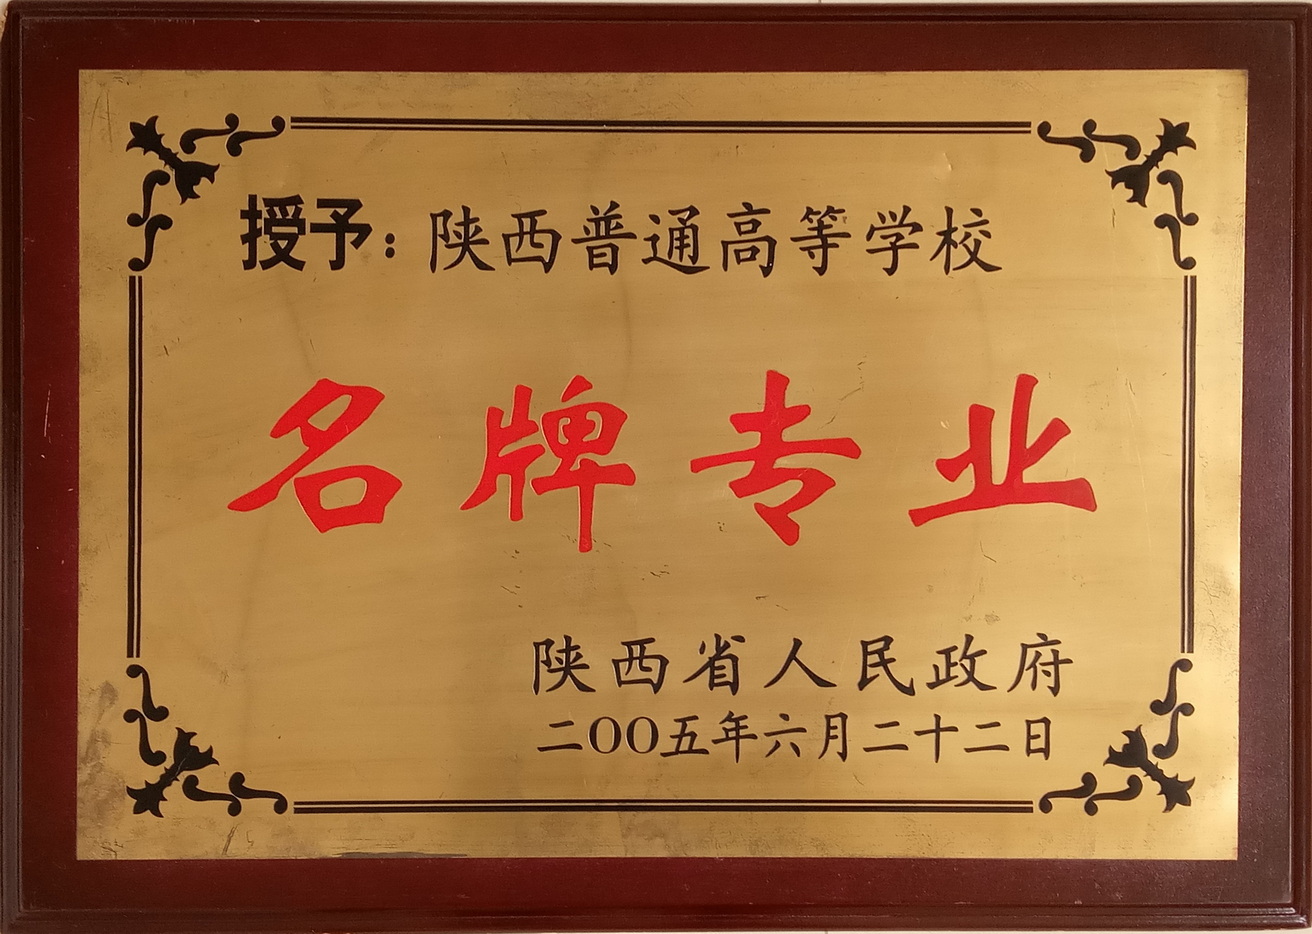 授予：陕西普通高等学校
名牌专业
陕西省人民政府
二〇〇五年六月二十二日